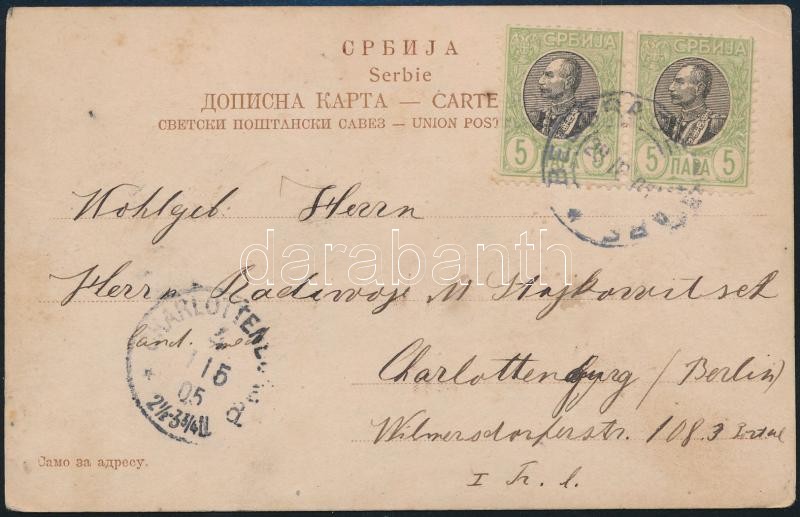 СРБИЈА
Serbie
ДОПИСНА КАРТА — CARTE
СВЕТСКИ ПОШТАНСКИ САВЕЗ — UNION POST
СРБИЈА СРБИЈА
5 ПАРА 5 ПАРА 5
Wohlgeb Herrn
Herrn Radivoje M Stojkowitsch
cand. med
Charlottenburg / (Berlin)
Wilmersdorferstr. 108. 3 Portal
I Tr. l.
CHARLOTTENBURG
115
05
2½-3¾N
Само за адресу.
darabanth